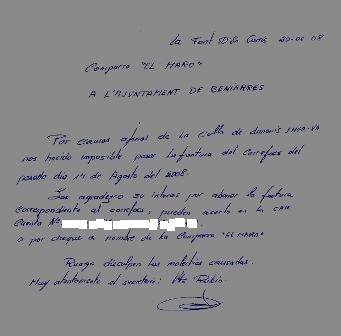 La Font D'En Carròs 20-08 08
Comparsa "EL MARO"
A L'AJUNTAMENT DE BENIARRES
Por causas ajenas de la colla de dimonis
nos ha sido imposible pasar la factura del correfocs del
pasado dia 14 de Agosto del 2008.
Les agradezco su interes por abonar la factura
correspondiente al correfocs, pueden acerlo en la CAM
Cuenta Nº
o por cheque a nombre de la Comparsa "EL MARO"
Ruego disculpen las molestias causadas.
Muy atentamente el secretari: Rubio